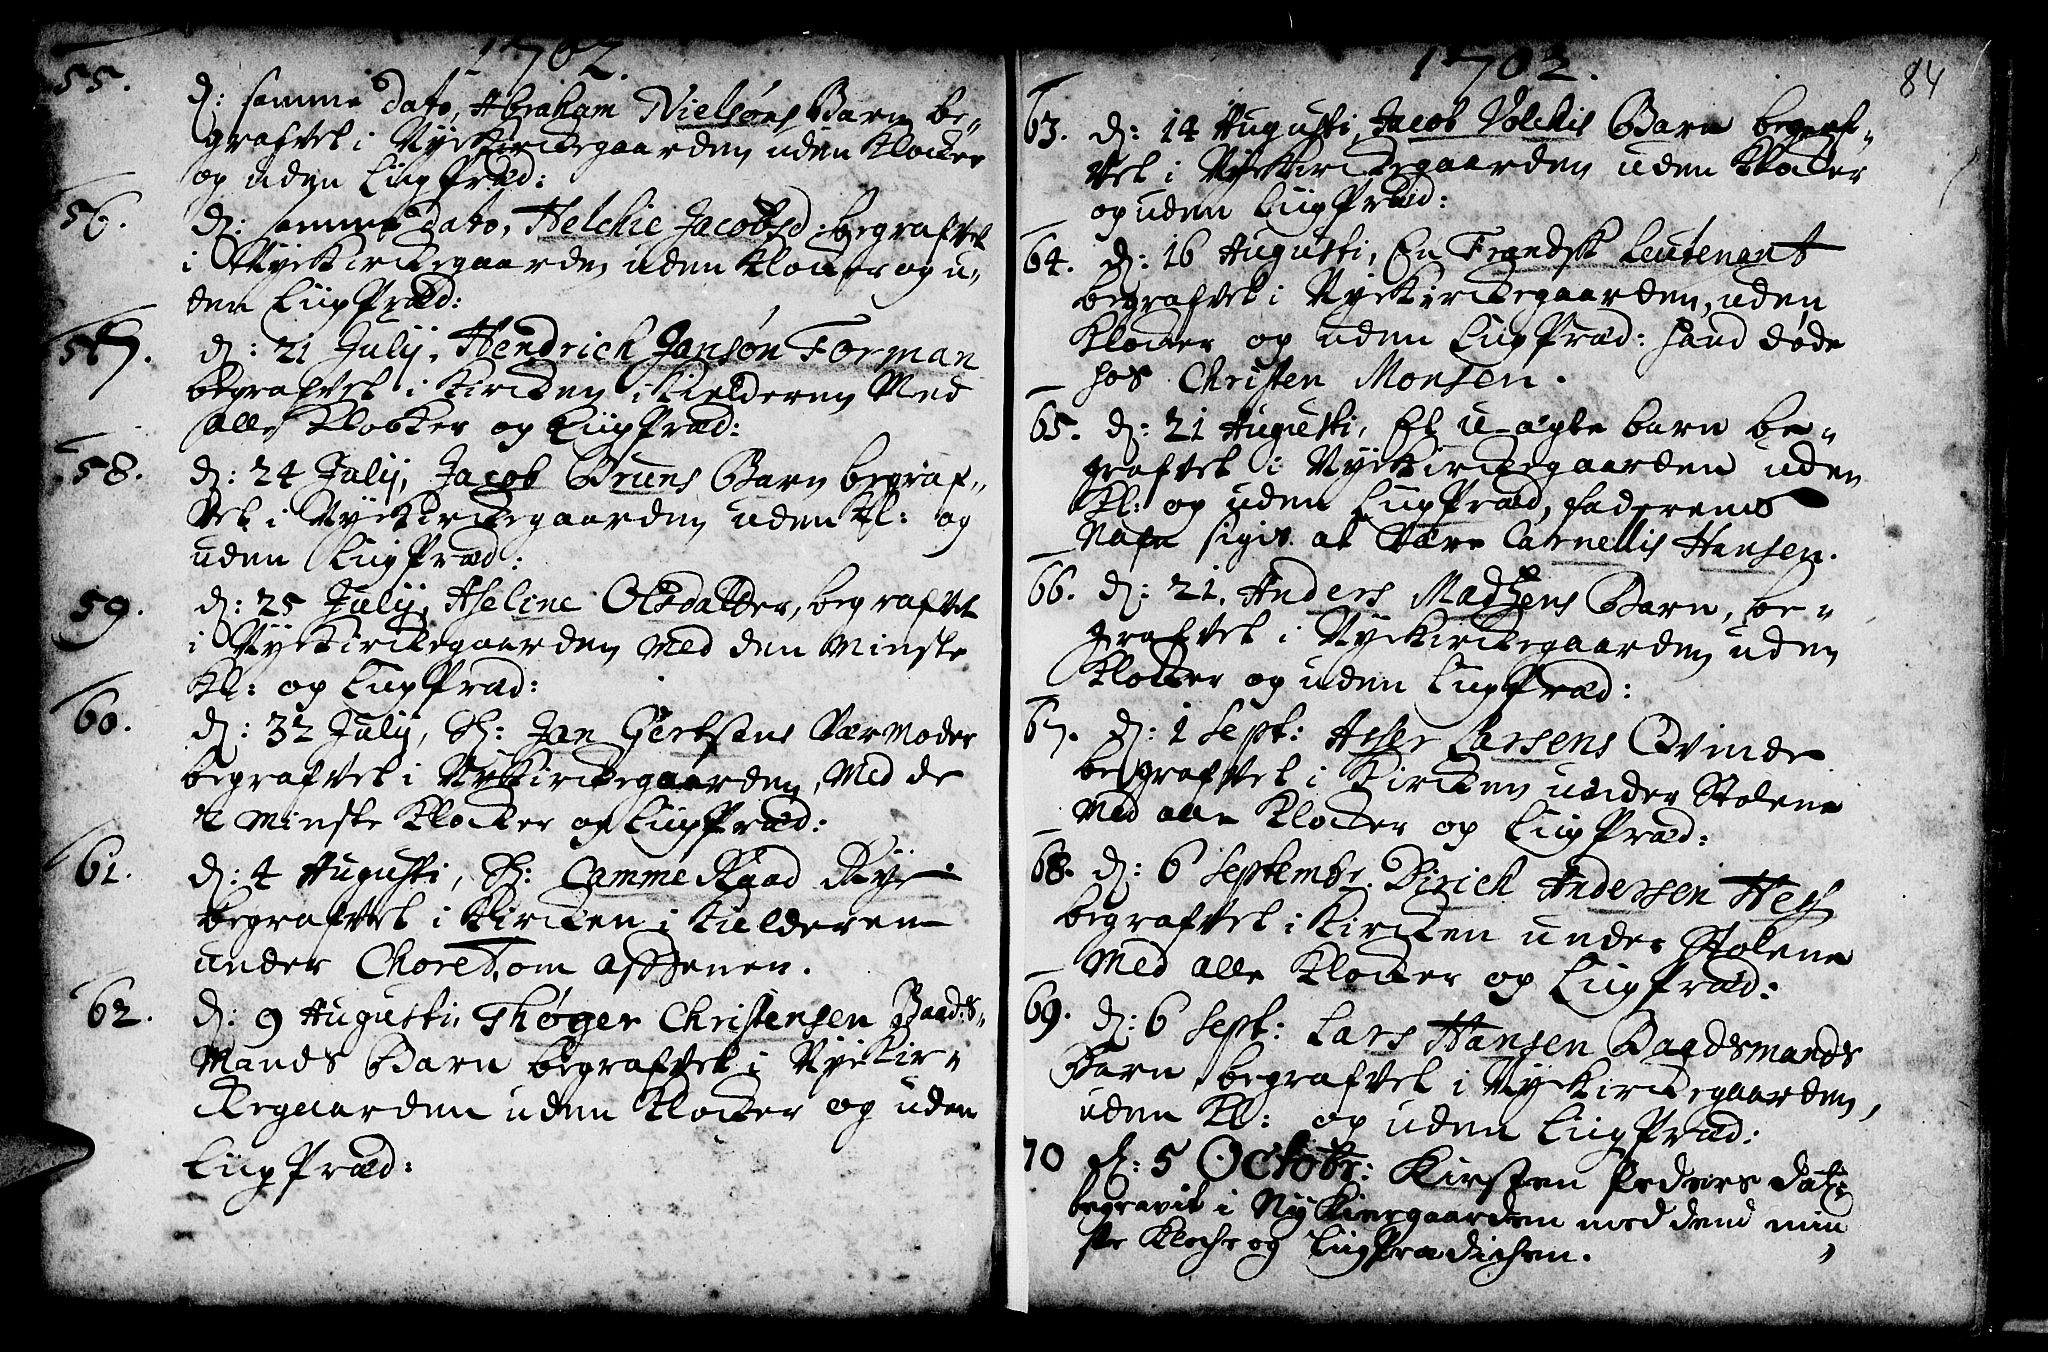 1702.
55. d: samme dato, Abraham Nielsøns Barn be-
grafvet i Nyekirckegaarden uden Klocker
og uden LiigPræd:
56. d: samme dato, Helchie Jacobsd: begrafvet
i Nyekirckegaarden uden Klocker og u-
den LiigPræd:
57. d: 21 Julij, Hendrich Jansøn Forman
begrafvet i Kircken i Kielderen Med
alle Klocker og LiigPræd:
58. d: 24 Julij, Jacob Bruns Barn begraf-
vet i Nyekirckegaarden uden Kl: og
uden LiigPræd:
59. d: 25 Julij, Aseline Olsdatter, begrafvet
i Nyekirckegaarden Med den Minste
Kl: og LiigPræd:
60. d: 32 Julij, Sl: Jan GertsensVærmoder
begrafvet i Nyekirckegaarden, Med de
2 Minste Klocker og LiigPræd:
61. d: 4 Augusti, Sl: CammeRaad
begrafvet i Kircken i Kielderen
under Choret, om Aftenen.
62. d: 9 Augusti, Thøger Christensen Baads-
Mands Barn begrafvet i Nyekir-
ckegaarden uden Klocker og uden
LiigPræd:
1702.
84
63. d: 14 Augusti, Jacob Volchis Barn begraf-
vet i Nyekirckegaarden uden Klocker
og uden LiigPræd:
64. d: 16 Augusti, En Frandsk Leutenant
begrafvet i Nyekirckegaarden, uden
Klocker og uden LiigPræd: hand døde
hos Christen Monsen.
65. d: 21 Augusti, Et u-ægte barn be-
grafvet i Nyekirckegaarden uden
Kl: og uden LiigPræd, faderens
Nafn sigis at være Carnellis Hansen.
66. d: 21, Anders Madsens Barn, be-
grafvet i Nyekirckegaarden uden
Klocker og uden LiigPræd:
67. d: 1 Sept: Larsens Qvinde
begrafvet i Kircken under Stolene
Med alle Klocker og LiigPræd:
68. d: 6 Septembr. Dirich Andersen
begrafvet i Kircken under Stolene
Med alle Klocker og LiigPræd:
69. d: 6 Sept: Lars Hansen Baadsmands
Barn begrafvet i Nyekirckegaarden,
uden Kl: og uden LiigPræd:
70 d: 5 Octobr: Kirsten Peders dat:
begravit i Nykiergaarden med dend min
ste Klocke og LiigPrædichen.